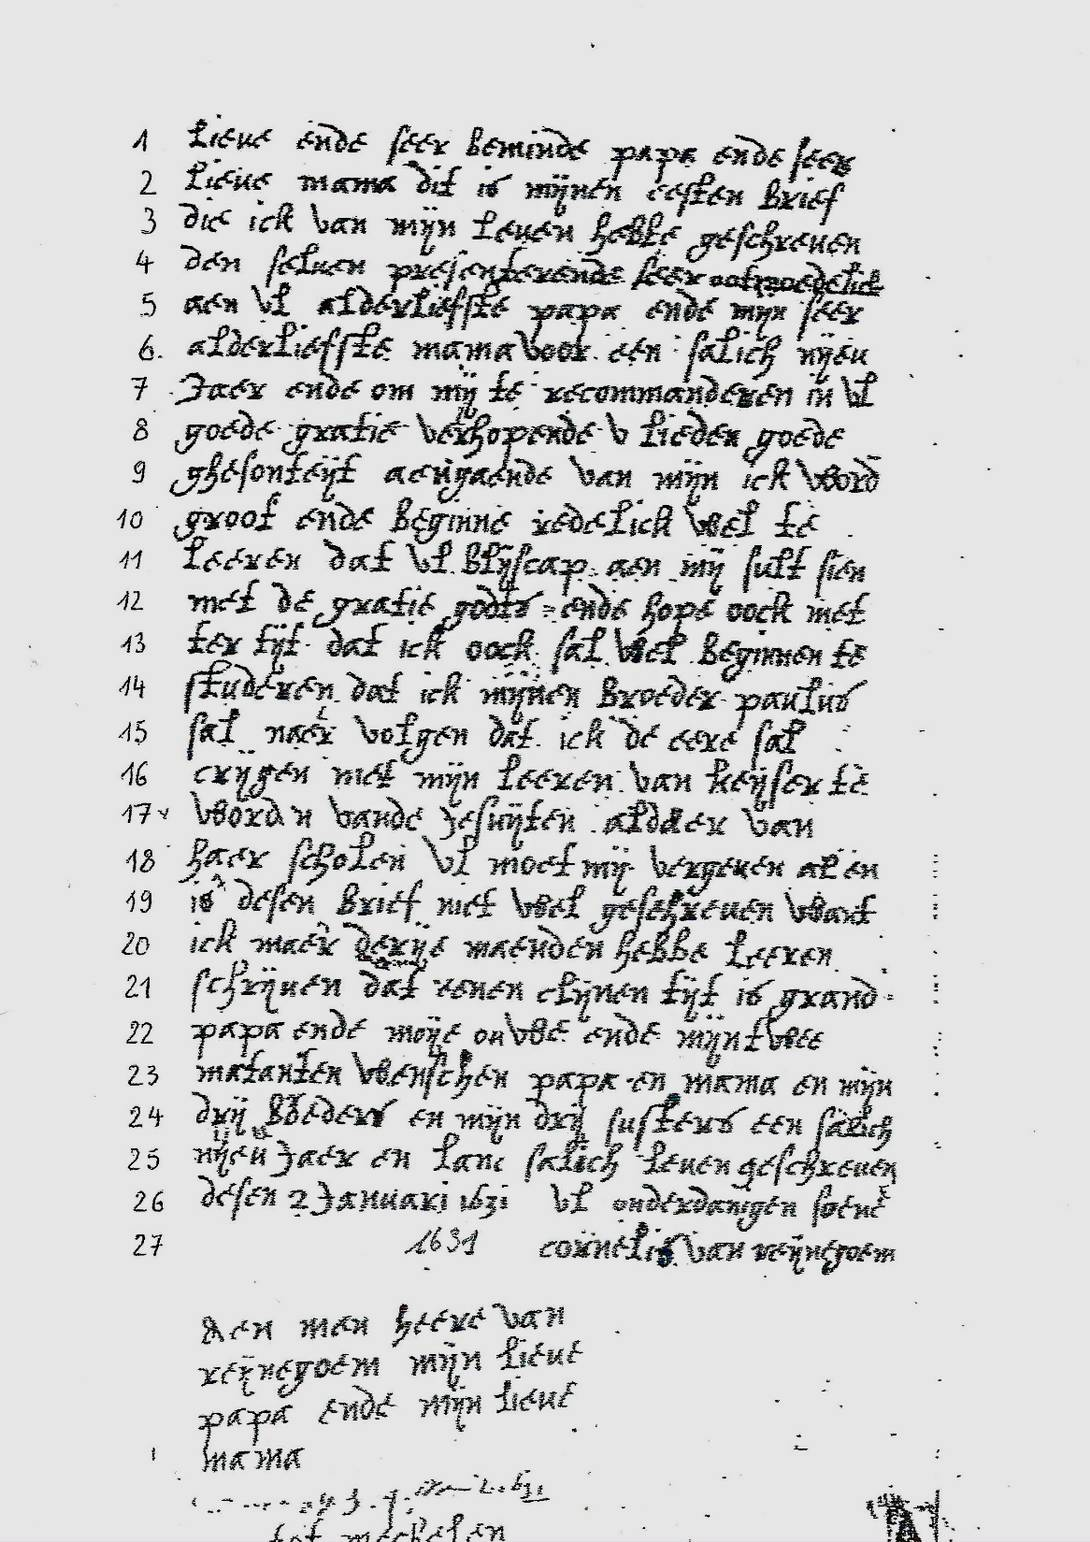 1 Lieue ende seer beminde papa ende seer
2 lieue mama dit is mijnen eesten brief
3 die ick van mijn leuen hebbe geschreuen
4 den seluen presenterende seer ootmoedelick
5 aen vl alderliefste papa ende mijn seer
6. alderliefste mama voor een salich nijeu
7 Jaer ende om mij te recommanderen in vl
8 goede gratie verhopende v lieden goede
9 ghesonteijt aengaende van mijn ick word
10 groot ende beginne redelick wel te
11 leeren dat vl blijscap aen mij sult sien
12 met de gratie godts = ende hope oock met
13 ter tijt dat ick oock sal wel beginnen te
14 studeren dat ick mijnen broeder paulus
15 sal naer volgen dat ick de eere sal
16 crijgen met mijn leeren van keijser te
17 word'n vande Jesuijten aldaer van
18 haer scholen vl moet mij vergeuen al en
19 is desen brief niet wel geschreuen want
20 ick maer derije maenden hebbe leeren
21 schrijuen dat eenen clijnen tijt is grand-
22 papa ende moije onwe ende mijn twee
23 matanten wenschen papa en mama en mijn
24 drij broeders en mijn drij susters een salich
25 nijeu Jaer en lanc salich leuen geschreuen
26 desen 2 Januari 1631 vl onderdanigen soene
27 1631 cornelis van reijnegoem
Aen men heere van
reijnegoem mijn lieue
papa ende mijn lieue
mama
tot mechelen